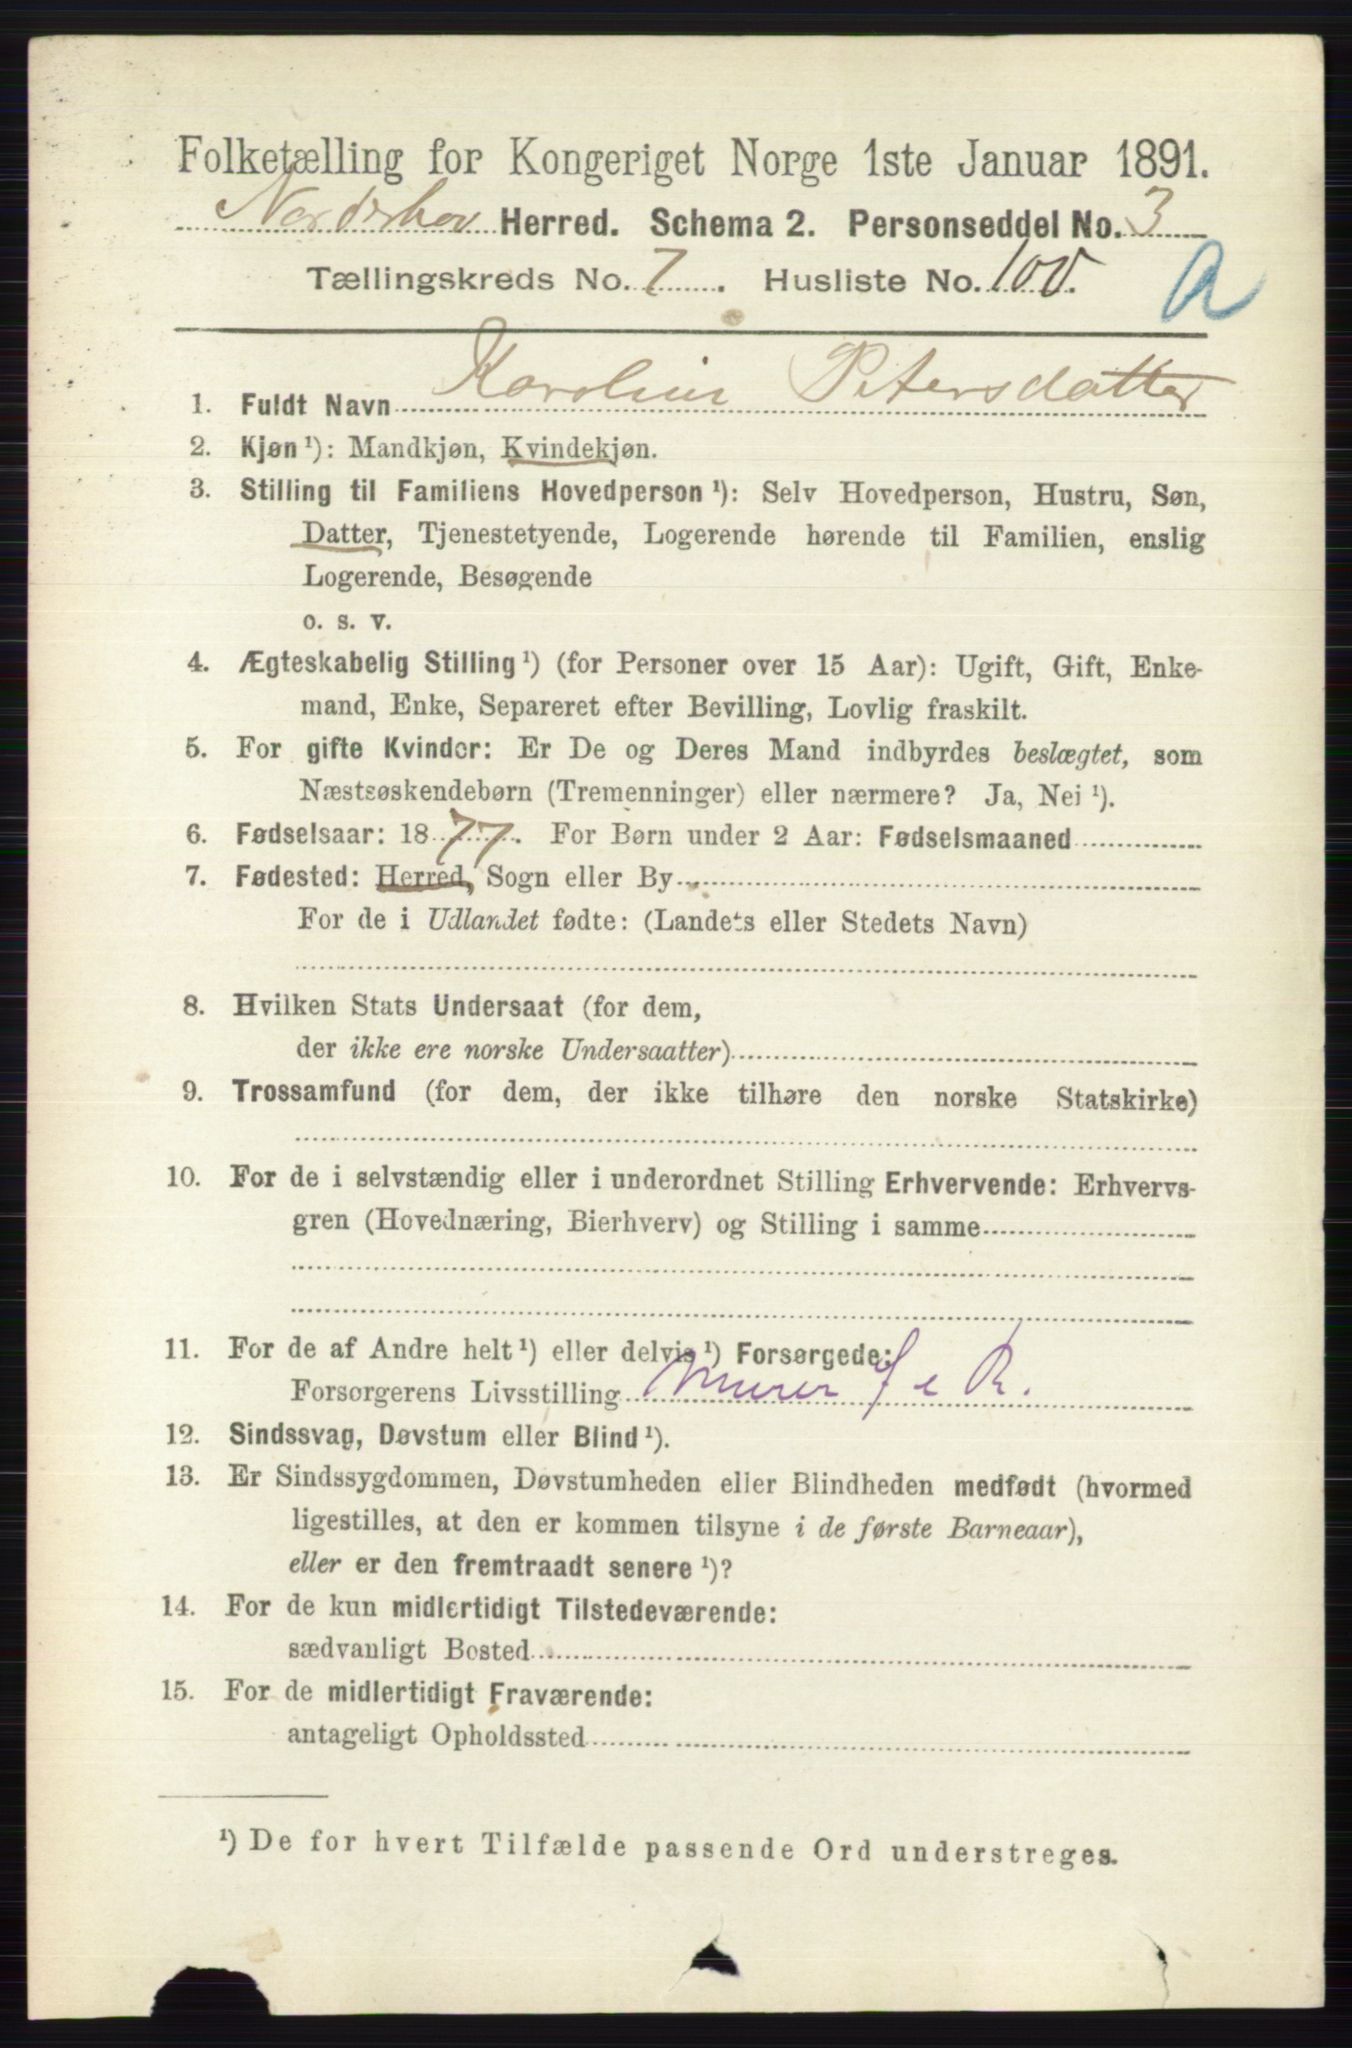 Folketælling for Kongeriget Norge 1ste Januar 1891.
Norderhov Herred. Schema 2. Personseddel No. 3
Tællingskreds No. 7. Husliste No. 100. a
1. Fuldt Navn Karoline Petersdatter
2. Kjøn¹): Mandkjøn, Kvindekjøn.
3. Stilling til Familiens Hovedperson¹): Selv Hovedperson, Hustru, Søn,
Datter, Tjenestetyende, Logerende hørende til Familien, enslig
Logerende, Besøgende
o. s. v.
4. Ægteskabelig Stilling¹) (for Personer over 15 Aar): Ugift, Gift, Enke-
mand, Enke, Separeret efter Bevilling, Lovlig fraskilt.
5. For gifte Kvinder: Er De og Deres Mand indbyrdes beslægtet, som
Næstsøskendebørn (Tremenninger) eller nærmere? Ja, Nei¹).
6. Fødselsaar: 1877. For Børn under 2 Aar: Fødselsmaaned
7. Fødested: Herred, Sogn eller By
For de i Udlandet fødte: (Landets eller Stedets Navn)
8. Hvilken Stats Undersaat (for dem,
der ikke ere norske Undersaatter)
9. Trossamfund (for dem, der ikke tilhøre den norske Statskirke)
10. For de i selvstændig eller i underordnet Stilling Erhvervende: Erhvervs-
gren (Hovednæring, Bierhverv) og Stilling i samme
11. For de af Andre helt¹) eller delvis¹) Forsørgede:
Forsørgerens Livsstilling Murer f e R.
12. Sindssvag, Døvstum eller Blind¹).
13. Er Sindssygdommen, Døvstumheden eller Blindheden medfødt (hvormed
ligestilles, at den er kommen tilsyne i de første Barneaar),
eller er den fremtraadt senere¹)?
14. For de kun midlertidigt Tilstedeværende:
sædvanligt Bosted
15. For de midlertidigt Fraværende:
antageligt Opholdssted
¹) De for hvert Tilfælde passende Ord understreges.